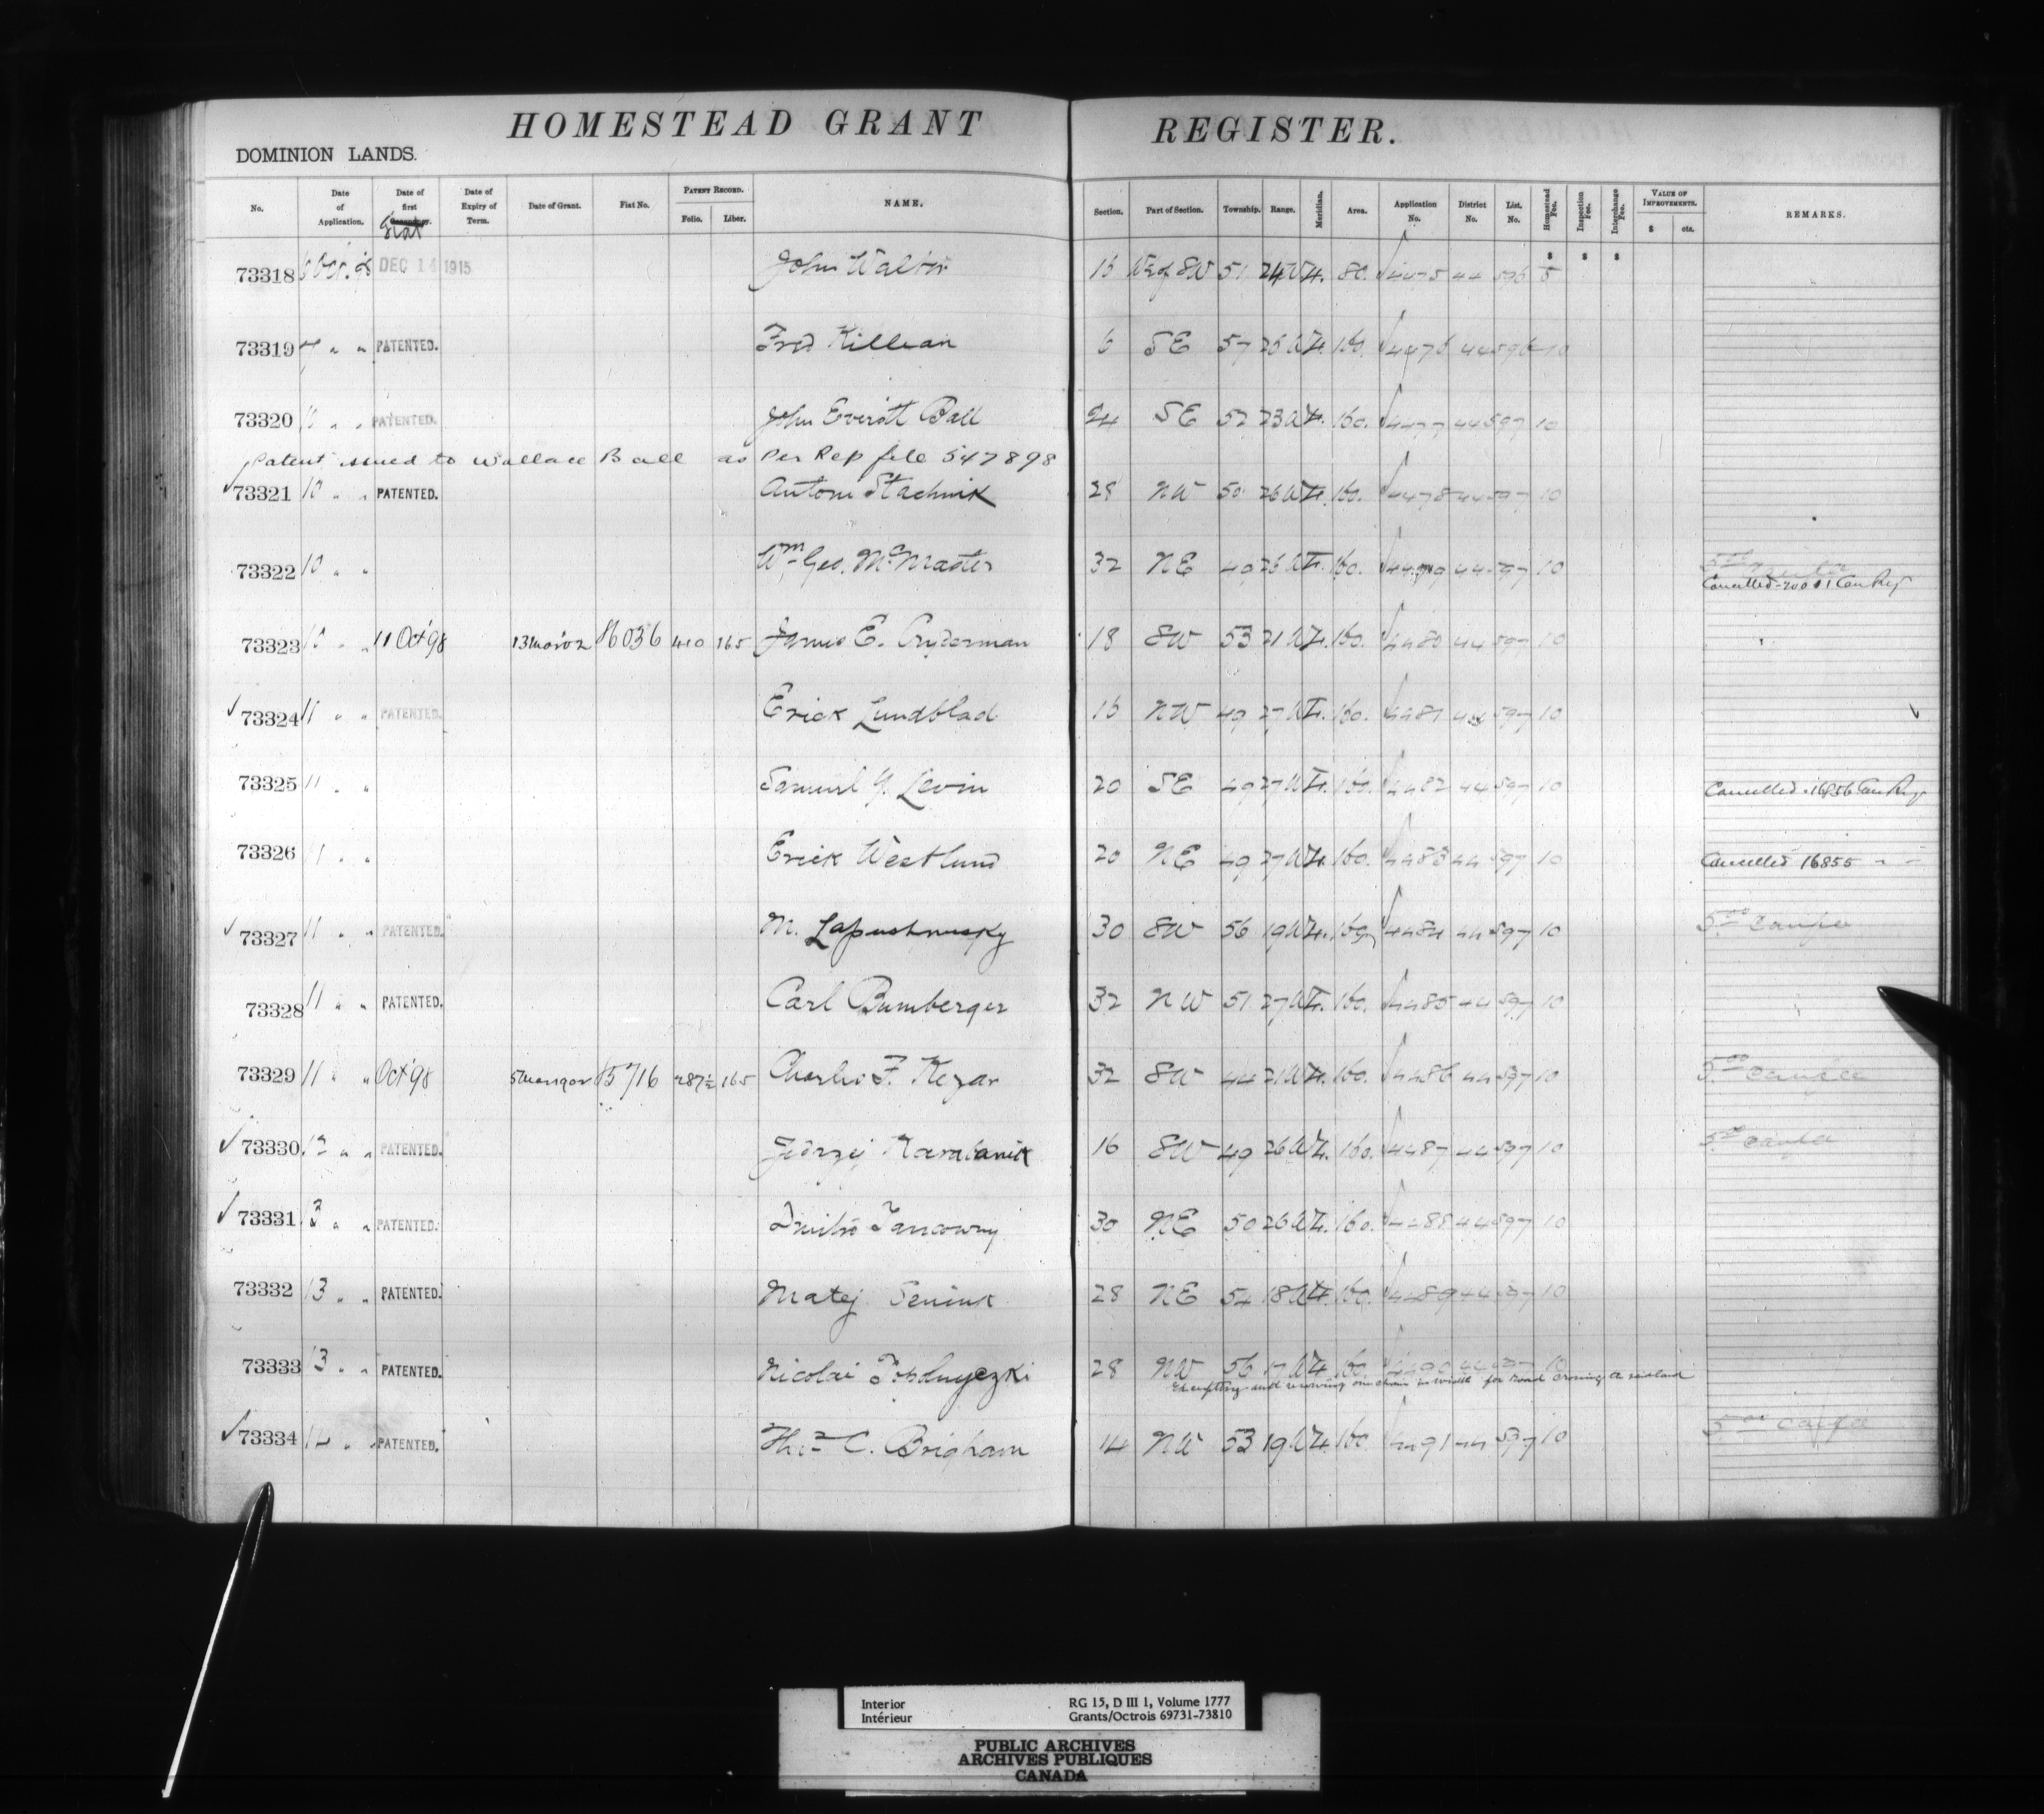 HOMESTEAD GRANT REGISTER.
DOMINION LANDS.
No. Date of Application. Date of first Fiat Date of Expiry of Term. Date of Grant. Fiat No. PATENT RECORD. Folio. Liber. NAME. Section. Part of Section. Township. Range. Meridian. Area. Application No. District No. List. No. Homestead Fee. Inspection Fee. Interchange Fee. VALUE OF IMPROVEMENTS. $ cts. REMARKS.
$ $ $
73318 6 Oct. 98 DEC 14 1915 John Walter 16 W½ of SW 51 24 W 4. 80. 4475 44 596 5
73319 7 " " PATENTED. Fred Killean 6 SE 57 25 W 4. 160. 4476 44 596 10
73320 10 " " PATENTED. John Everitt Ball 24 SE 52 23 W 4. 160. 4477 44 597 10
Patent issued to Wallace Ball as Per Rep file 547898
73321 10 " " PATENTED. Antoni Stachnik 28 NW 50 26 W 4. 160. 4478 44 597 10
73322 10 " " Wm Geo. McMaster 32 NE 49 26 W 4. 160. 4479 44 597 10 Cancelled 20001 Can Reg
73323 10 " " 11 Oct 98 13 Mar 02 16036 410 165 James E. 18 SW 53 21 W 4. 160. 4480 44 597 10
73324 11 " " PATENTED. Erick Lundblad 16 NW 49 27 W 4. 160. 4481 44 597 10
73325 11 " " Samuel Y. Levin 20 SE 49 27 W 4. 160. 4482 44 597 10 Cancelled 16856 Can Reg
73326 11 " " Erick Westlund 20 NE 49 27 W 4. 160. 4483 44 597 10 Cancelled 16855 " "
73327 11 " " PATENTED. M. Lapushnusky 30 SW 56 19 W 4. 160. 4484 44 597 10 5.00
73328 11 " " PATENTED. Carl Bumberger 32 NW 51 27 W 4. 160. 4485 44 597 10
73329 11 " " Oct 98 15716 287½ 165 Charles F. Kezar 32 SW 44 21 W 4. 160. 4486 44 597 10 5.00
73330 12 " " PATENTED. Jedrzej 16 SW 49 26 W 4. 160. 4487 44 597 10 5.00
73331 13 " " PATENTED. 30 NE 50 26 W 4. 160. 4488 44 597 10
73332 13 " " PATENTED. Matej Seniuk 28 NE 54 18 W 4. 160. 4489 44 597 10
73333 13 " " PATENTED. Nicolai 28 NW 56 17 W 4 160. 4490 44 597 10
Excepting and reserving one chain in width for road crossing
73334 14 " " PATENTED. Thos C. Brigham 14 NW 53 19 W 4. 160. 4491 44 597 10 5.00
Interior RG 15, D III 1, Volume 1777
Intérieur Grants/Octrois 69731-73810
PUBLIC ARCHIVES
ARCHIVES PUBLIQUES
CANADA